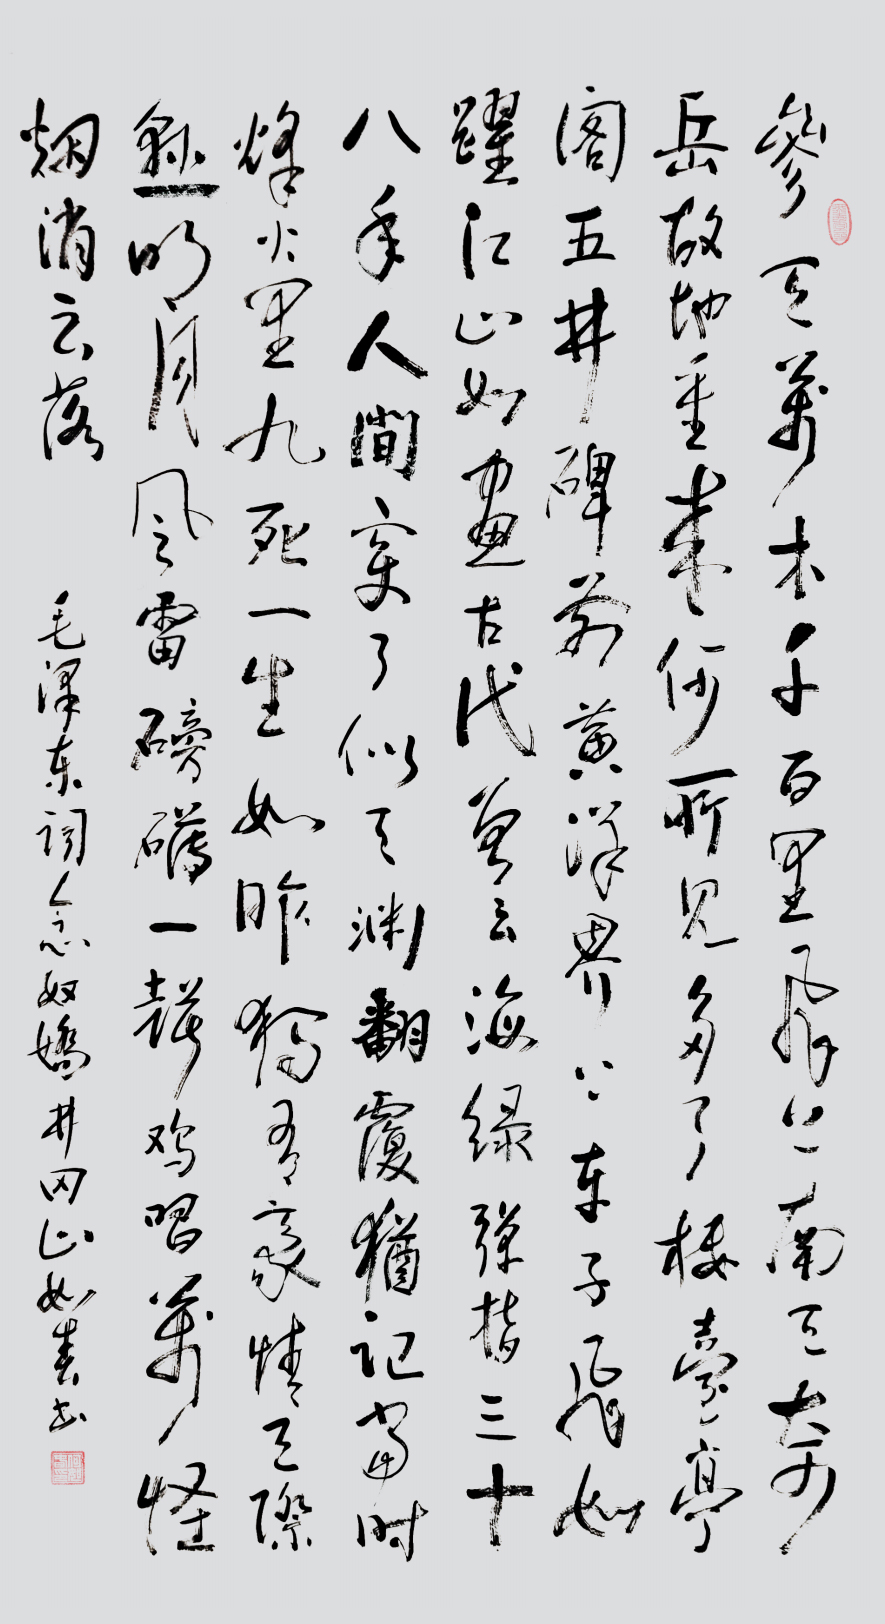 參天萬木千百里飛上南天奇
岳故地重来何所见多了楼臺亭
阁五井碑前黄洋界上车子飛如
躍江山如畫古代曾云海绿彈指三十
八年人間变了似天渊翻覆猶记當时
烽火里九死一生如昨獨有豪情天際
懸明月风雷磅礴一聲鸡唱萬怪
烟消云落
毛澤东词念奴嬌井冈山如春书